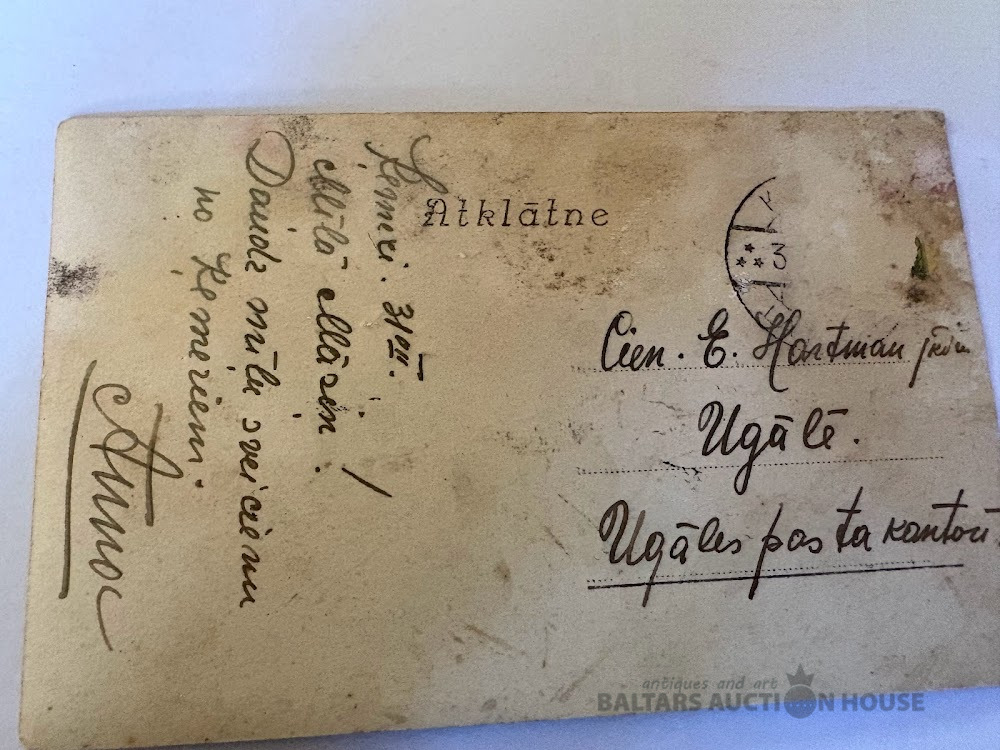 Atklātne
Ķemeri. 31 VII.
Mīļā Māsiņ!
Daudz mīļu sveicienu
no Ķemeriem.
Anna
3
Cien. E. Hartmań jkdze
Ugālē.
Ugāles pasta kantorī
antiques and art
BALTARS AUCTION HOUSE